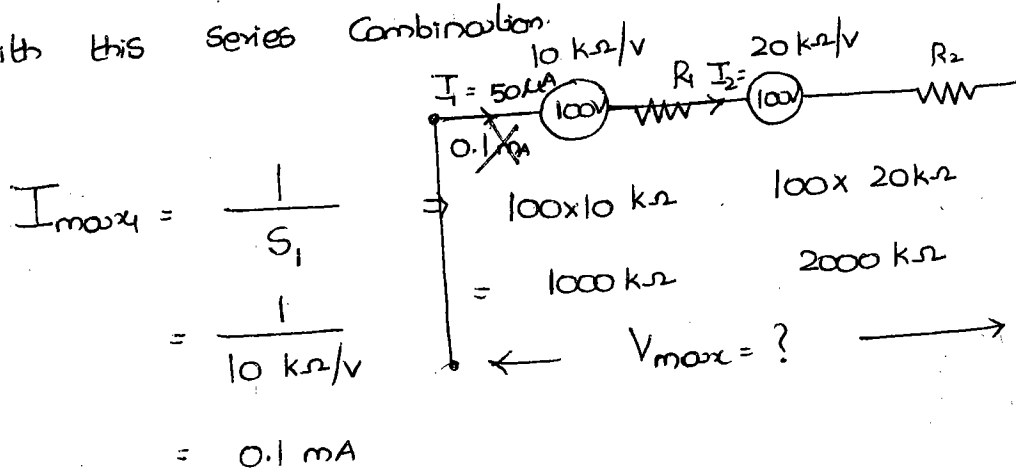 ith this series Combination.
10 kΩ/v 20 kΩ/v
I₁ = 50μA 100v R₁ I₂= 100v R₂
0.1 mA
Imax₁ = 1/S₁ ⇒ 100x10 kΩ 100x 20kΩ
= 1/10 kΩ/v = 1000 kΩ 2000 kΩ
← Vmax = ? →
= 0.1 mA